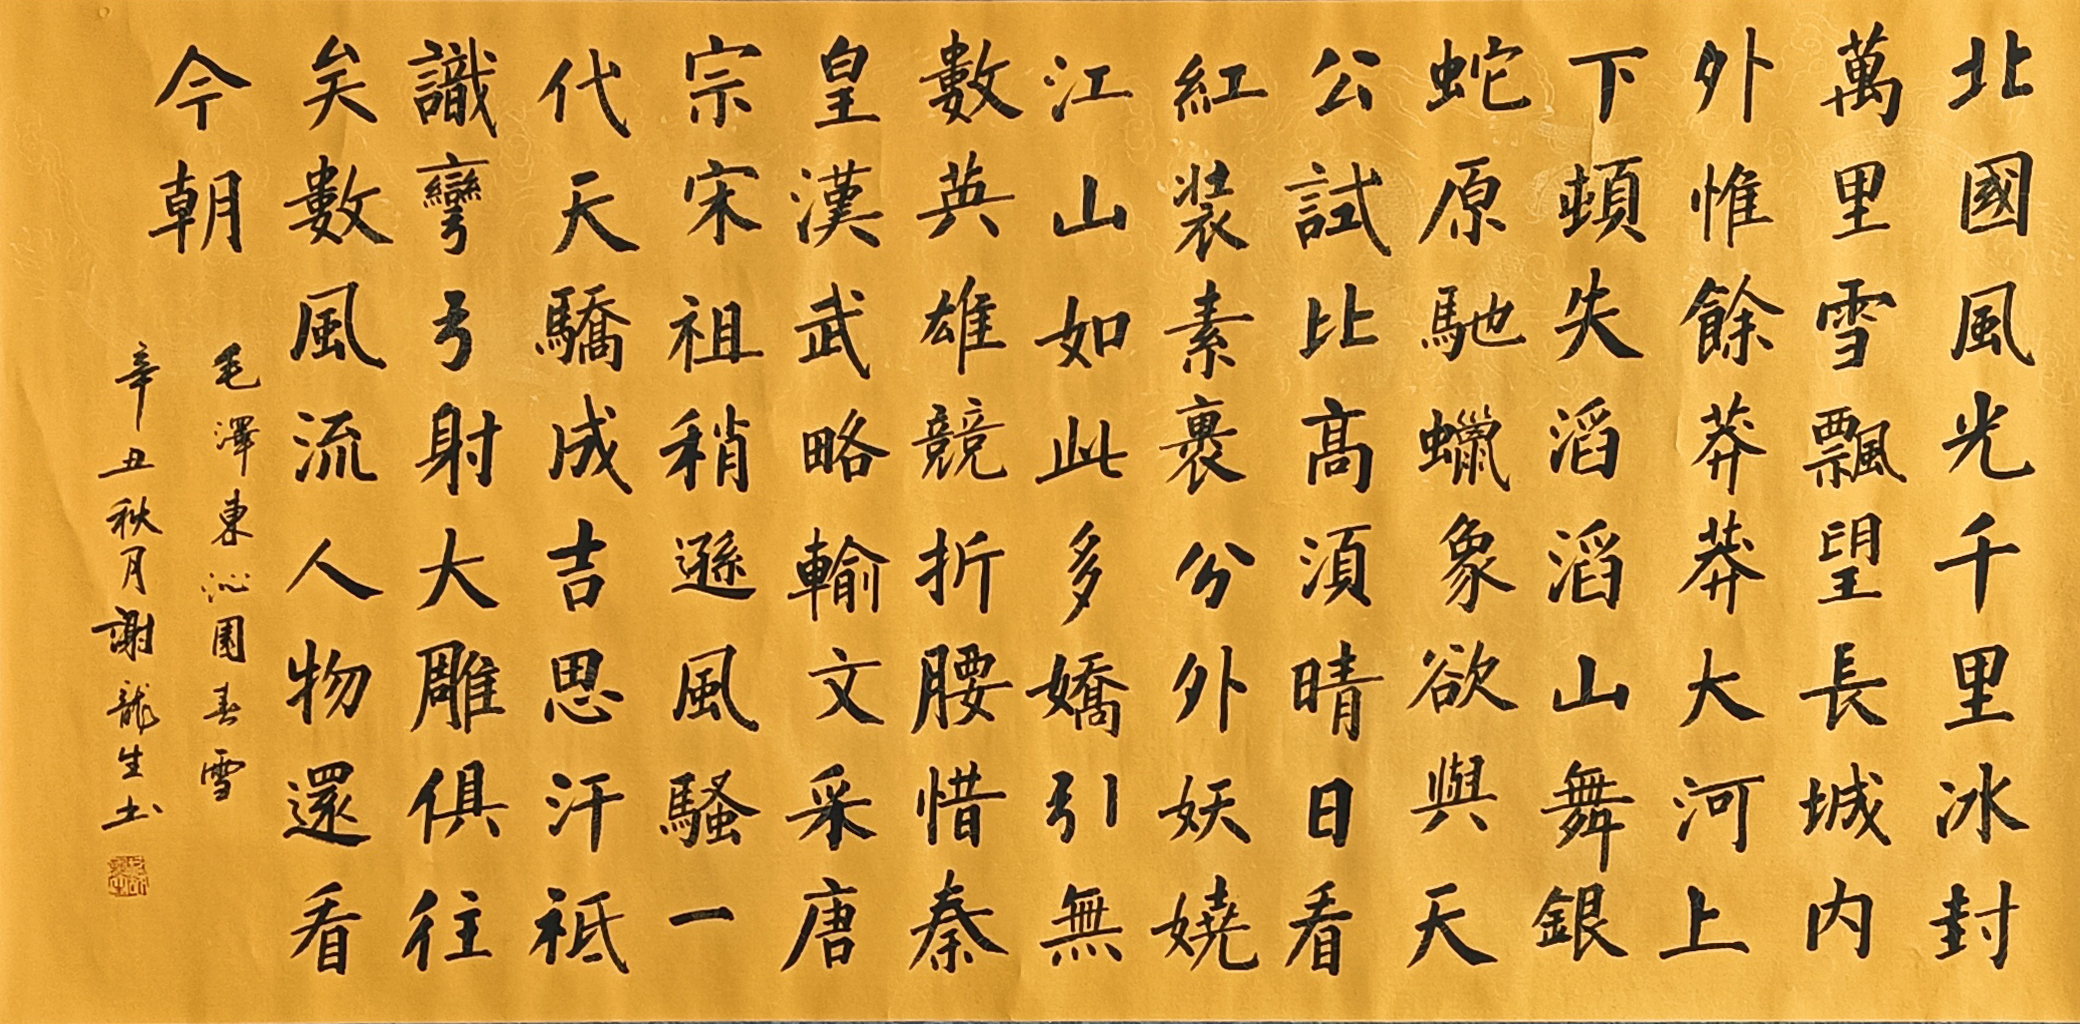 北國風光千里冰封
萬里雪飄望長城内
外惟餘莽莽大河上
下頓失滔滔山舞銀
蛇原馳蠟象欲與天
公試比高湏晴日看
紅装素裹分外妖嬈
江山如此多嬌引無
數英雄競折腰惜秦
皇漢武略輸文采唐
宗宋祖稍遜風騷一
代天驕成吉思汗祗
識彎弓射大雕俱往
矣數風流人物還看
今朝
毛澤東沁園春雪
辛丑秋月謝龍生书